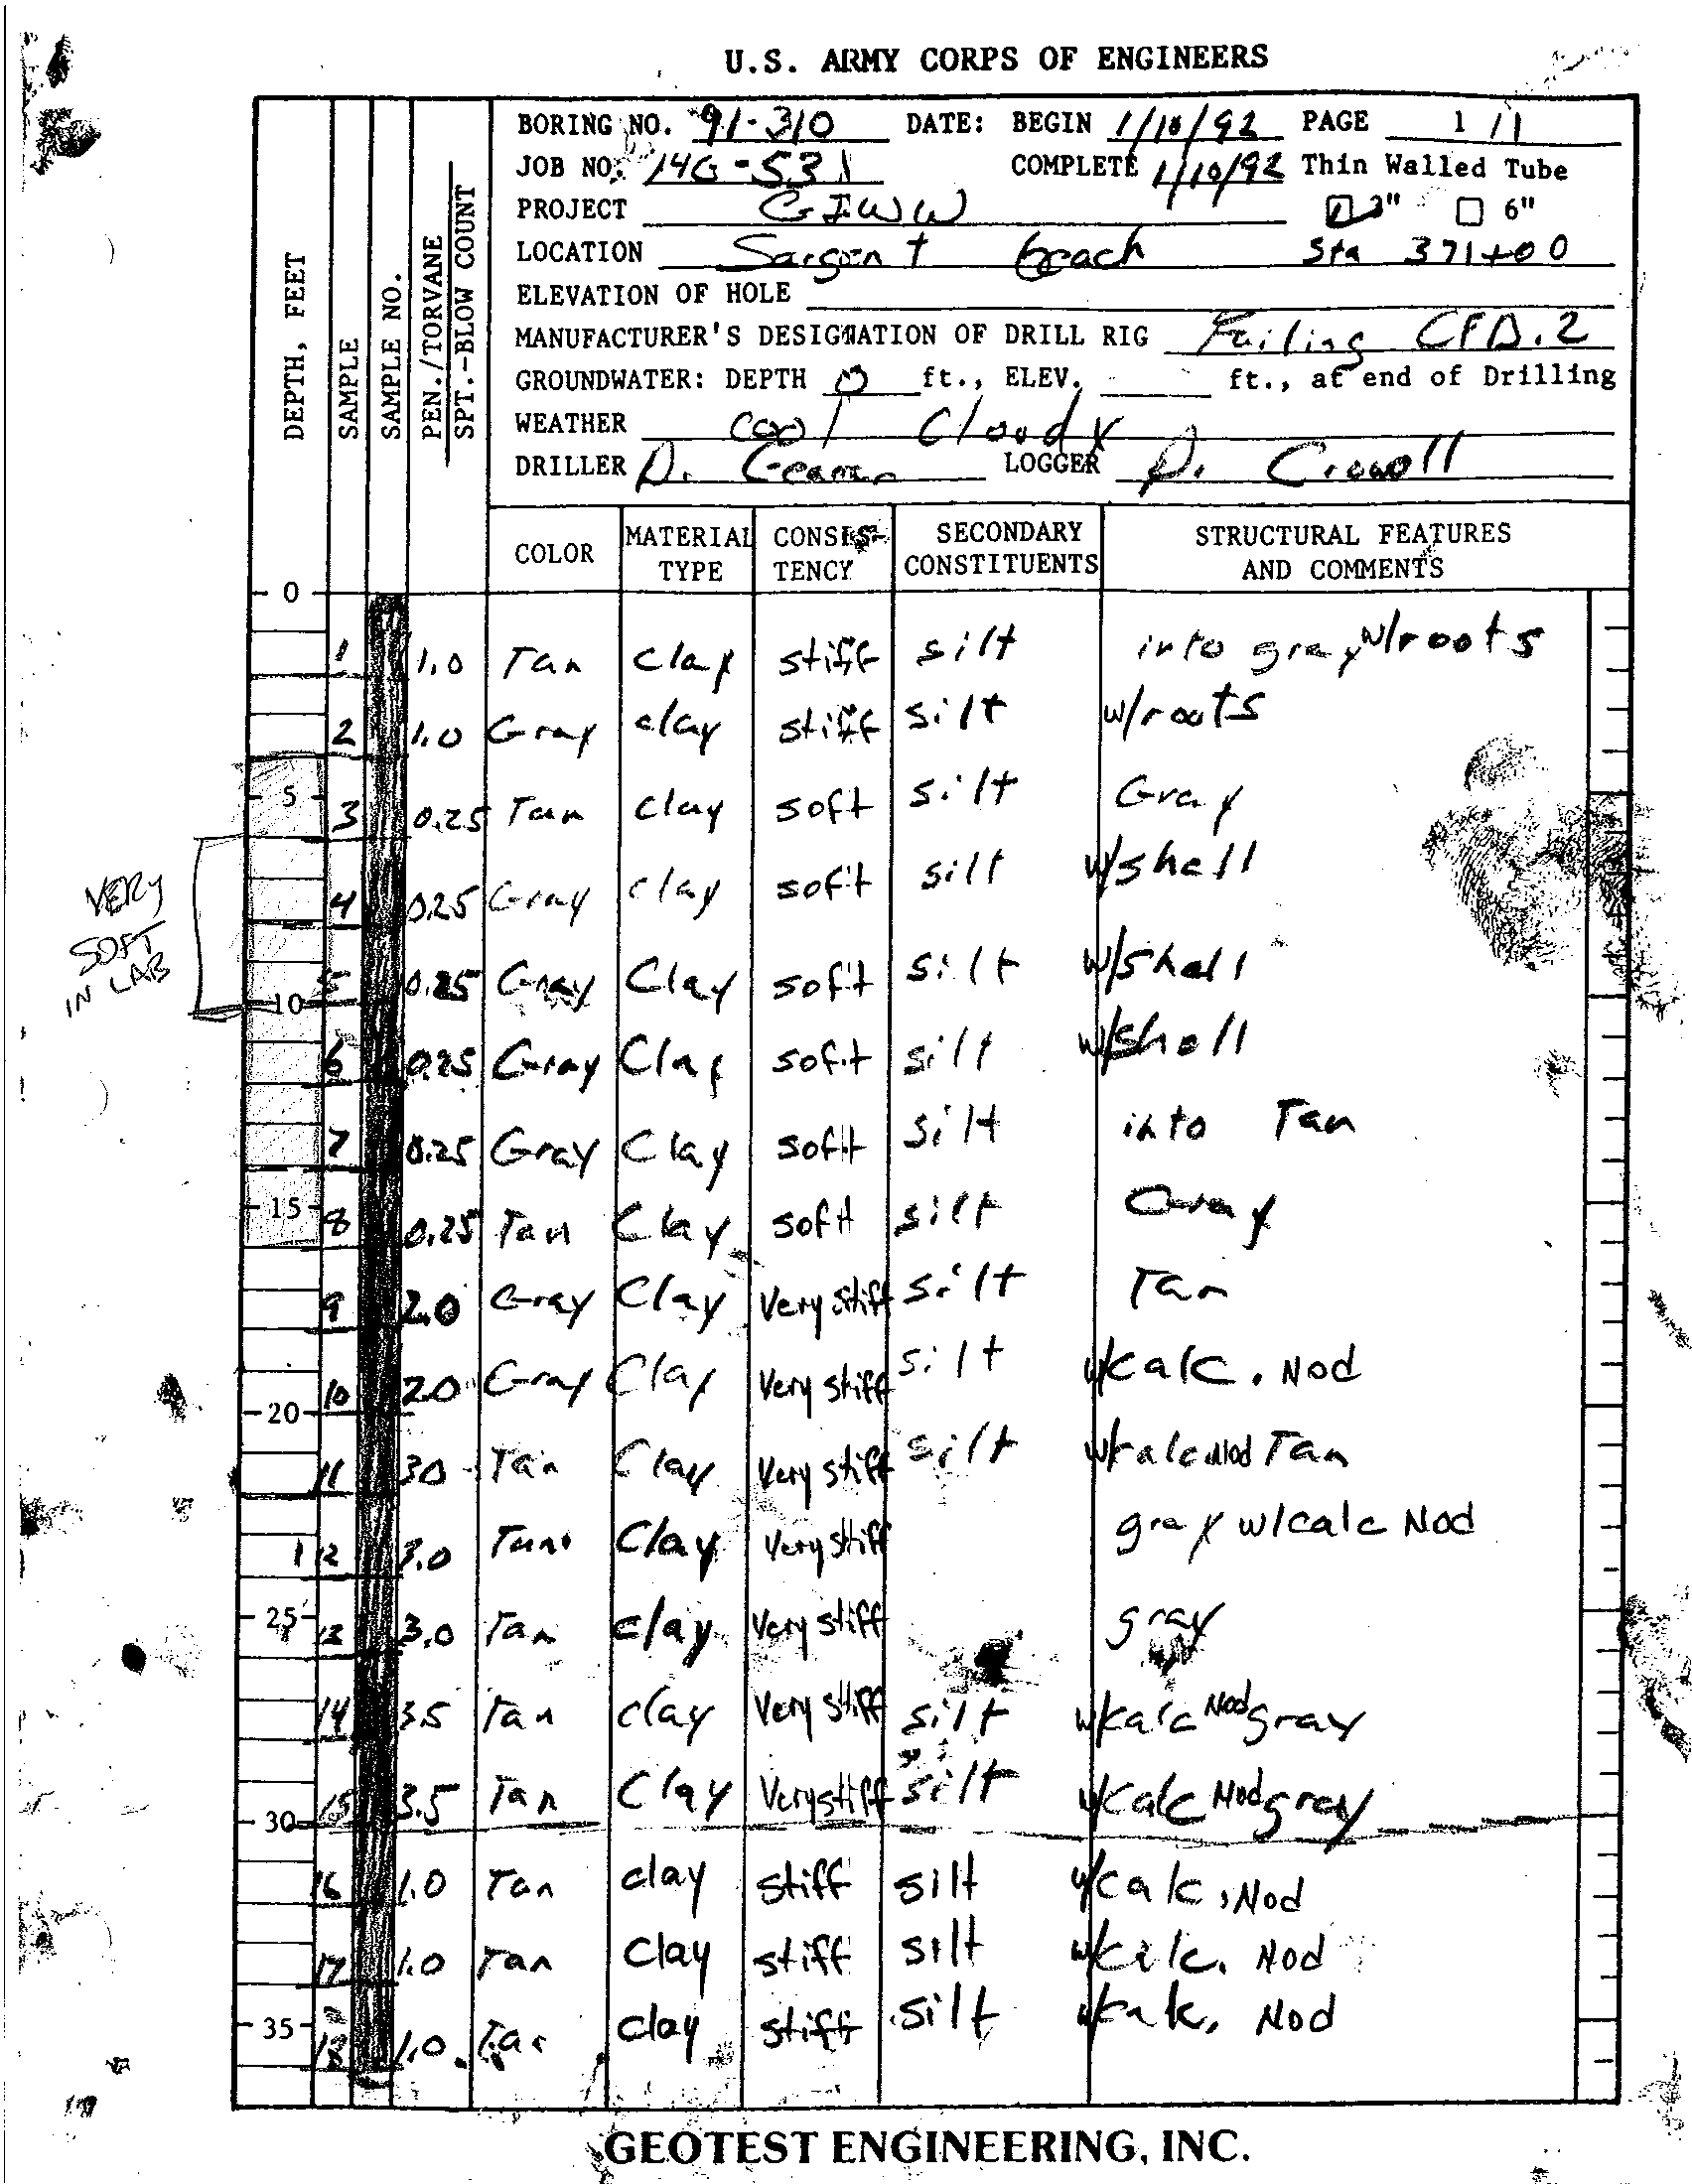 U.S. ARMY CORPS OF ENGINEERS
BORING NO. 91-310 DATE: BEGIN 1/10/92 PAGE 1/1
JOB NO. 14G-531 COMPLETE 1/10/92 Thin Walled Tube
PROJECT GIWW 3" 6"
LOCATION Sargent Beach Sta 371+00
ELEVATION OF HOLE
MANUFACTURER'S DESIGNATION OF DRILL RIG Failing CFD.2
GROUNDWATER: DEPTH 0 ft., ELEV. ft., at end of Drilling
WEATHER cool Cloudy
DRILLER D. LOGGER D. Crowell
DEPTH, FEET SAMPLE SAMPLE NO. PEN./TORVANE SPT.-BLOW COUNT
COLOR MATERIAL TYPE CONSIS-TENCY SECONDARY CONSTITUENTS STRUCTURAL FEATURES AND COMMENTS
0
1 1.0 Tan Clay stiff silt into gray w/roots
2 1.0 Gray clay stiff silt w/roots
5 3 0.25 Tan clay soft silt Gray
4 0.25 Gray clay soft silt w/shell
VERY SOFT IN LAB
10 5 0.25 Gray Clay soft silt w/shell
6 0.25 Gray Clay soft silt w/shell
7 0.25 Gray Clay soft silt into Tan
15 8 0.25 Tan Clay soft silt Gray
9 2.0 Gray Clay Very stiff silt Tan
20 10 2.0 Gray Clay Very stiff silt w/calc. Nod
11 3.0 Tan Clay Very stiff silt w/calc Nod Tan
12 3.0 Tan Clay Very stiff gray w/calc Nod
25 13 3.0 Tan clay Very stiff gray
14 3.5 Tan clay Very stiff silt w/calc Nod gray
30 15 3.5 Tan Clay Very stiff silt w/calc Nod gray
16 1.0 Tan clay stiff silt w/calc, Nod
17 1.0 Tan Clay stiff silt w/calc. Nod
35 18 1.0 Tan clay stiff silt w/calc. Nod
GEOTEST ENGINEERING, INC.